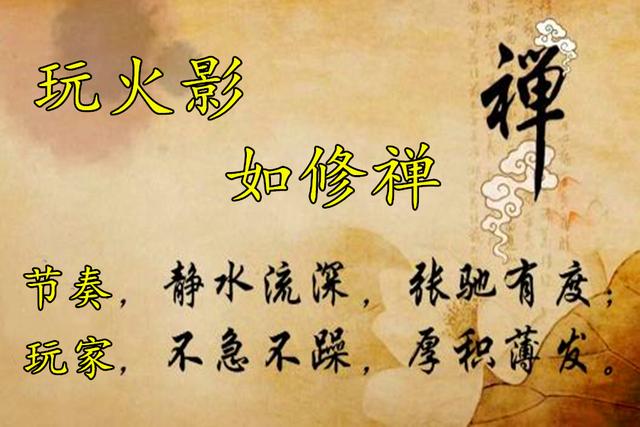 玩火影
禅
如修禅
节奏，静水流深，张驰有度；
玩家，不急不躁，厚积薄发。